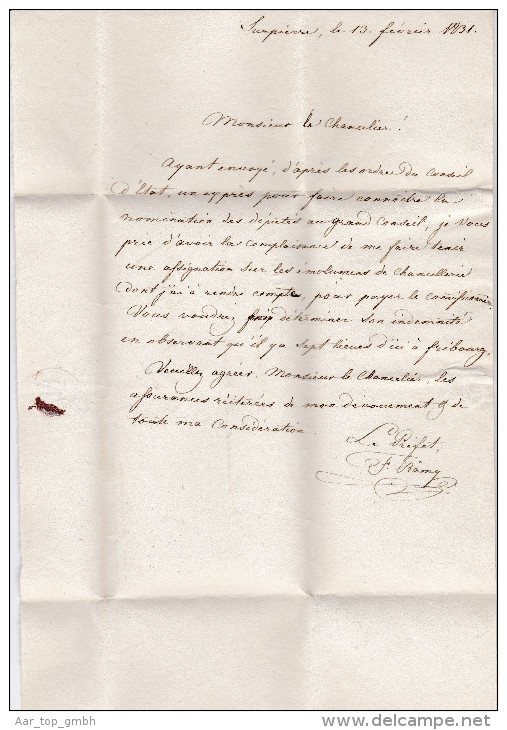 Surpierre, le 13 février 1831.
Monsieur le Chancelier!
Ayant envoyé, d'après les ordres du Conseil
d'Etat, un exprès pour faire connoitre la
nomination des députés au grand Conseil, je Vous
prie d'avoir la complaisance de me faire tenir
une assignation sur les émolumens de Chancellerie
dont j'ai à rendre compte, pour payer le commissionnaire.
Vous voudrez déterminer son indemnité
en observant qu'il y a sept lieues d'ici à fribourg.
Veuillez agréer, Monsieur le Chancelier, les
assurances réiterées de mon dévouement & de
toute ma considération.
Le Préfet,
F. Râmy
Aar_top_gmbh
www.delcampe.net